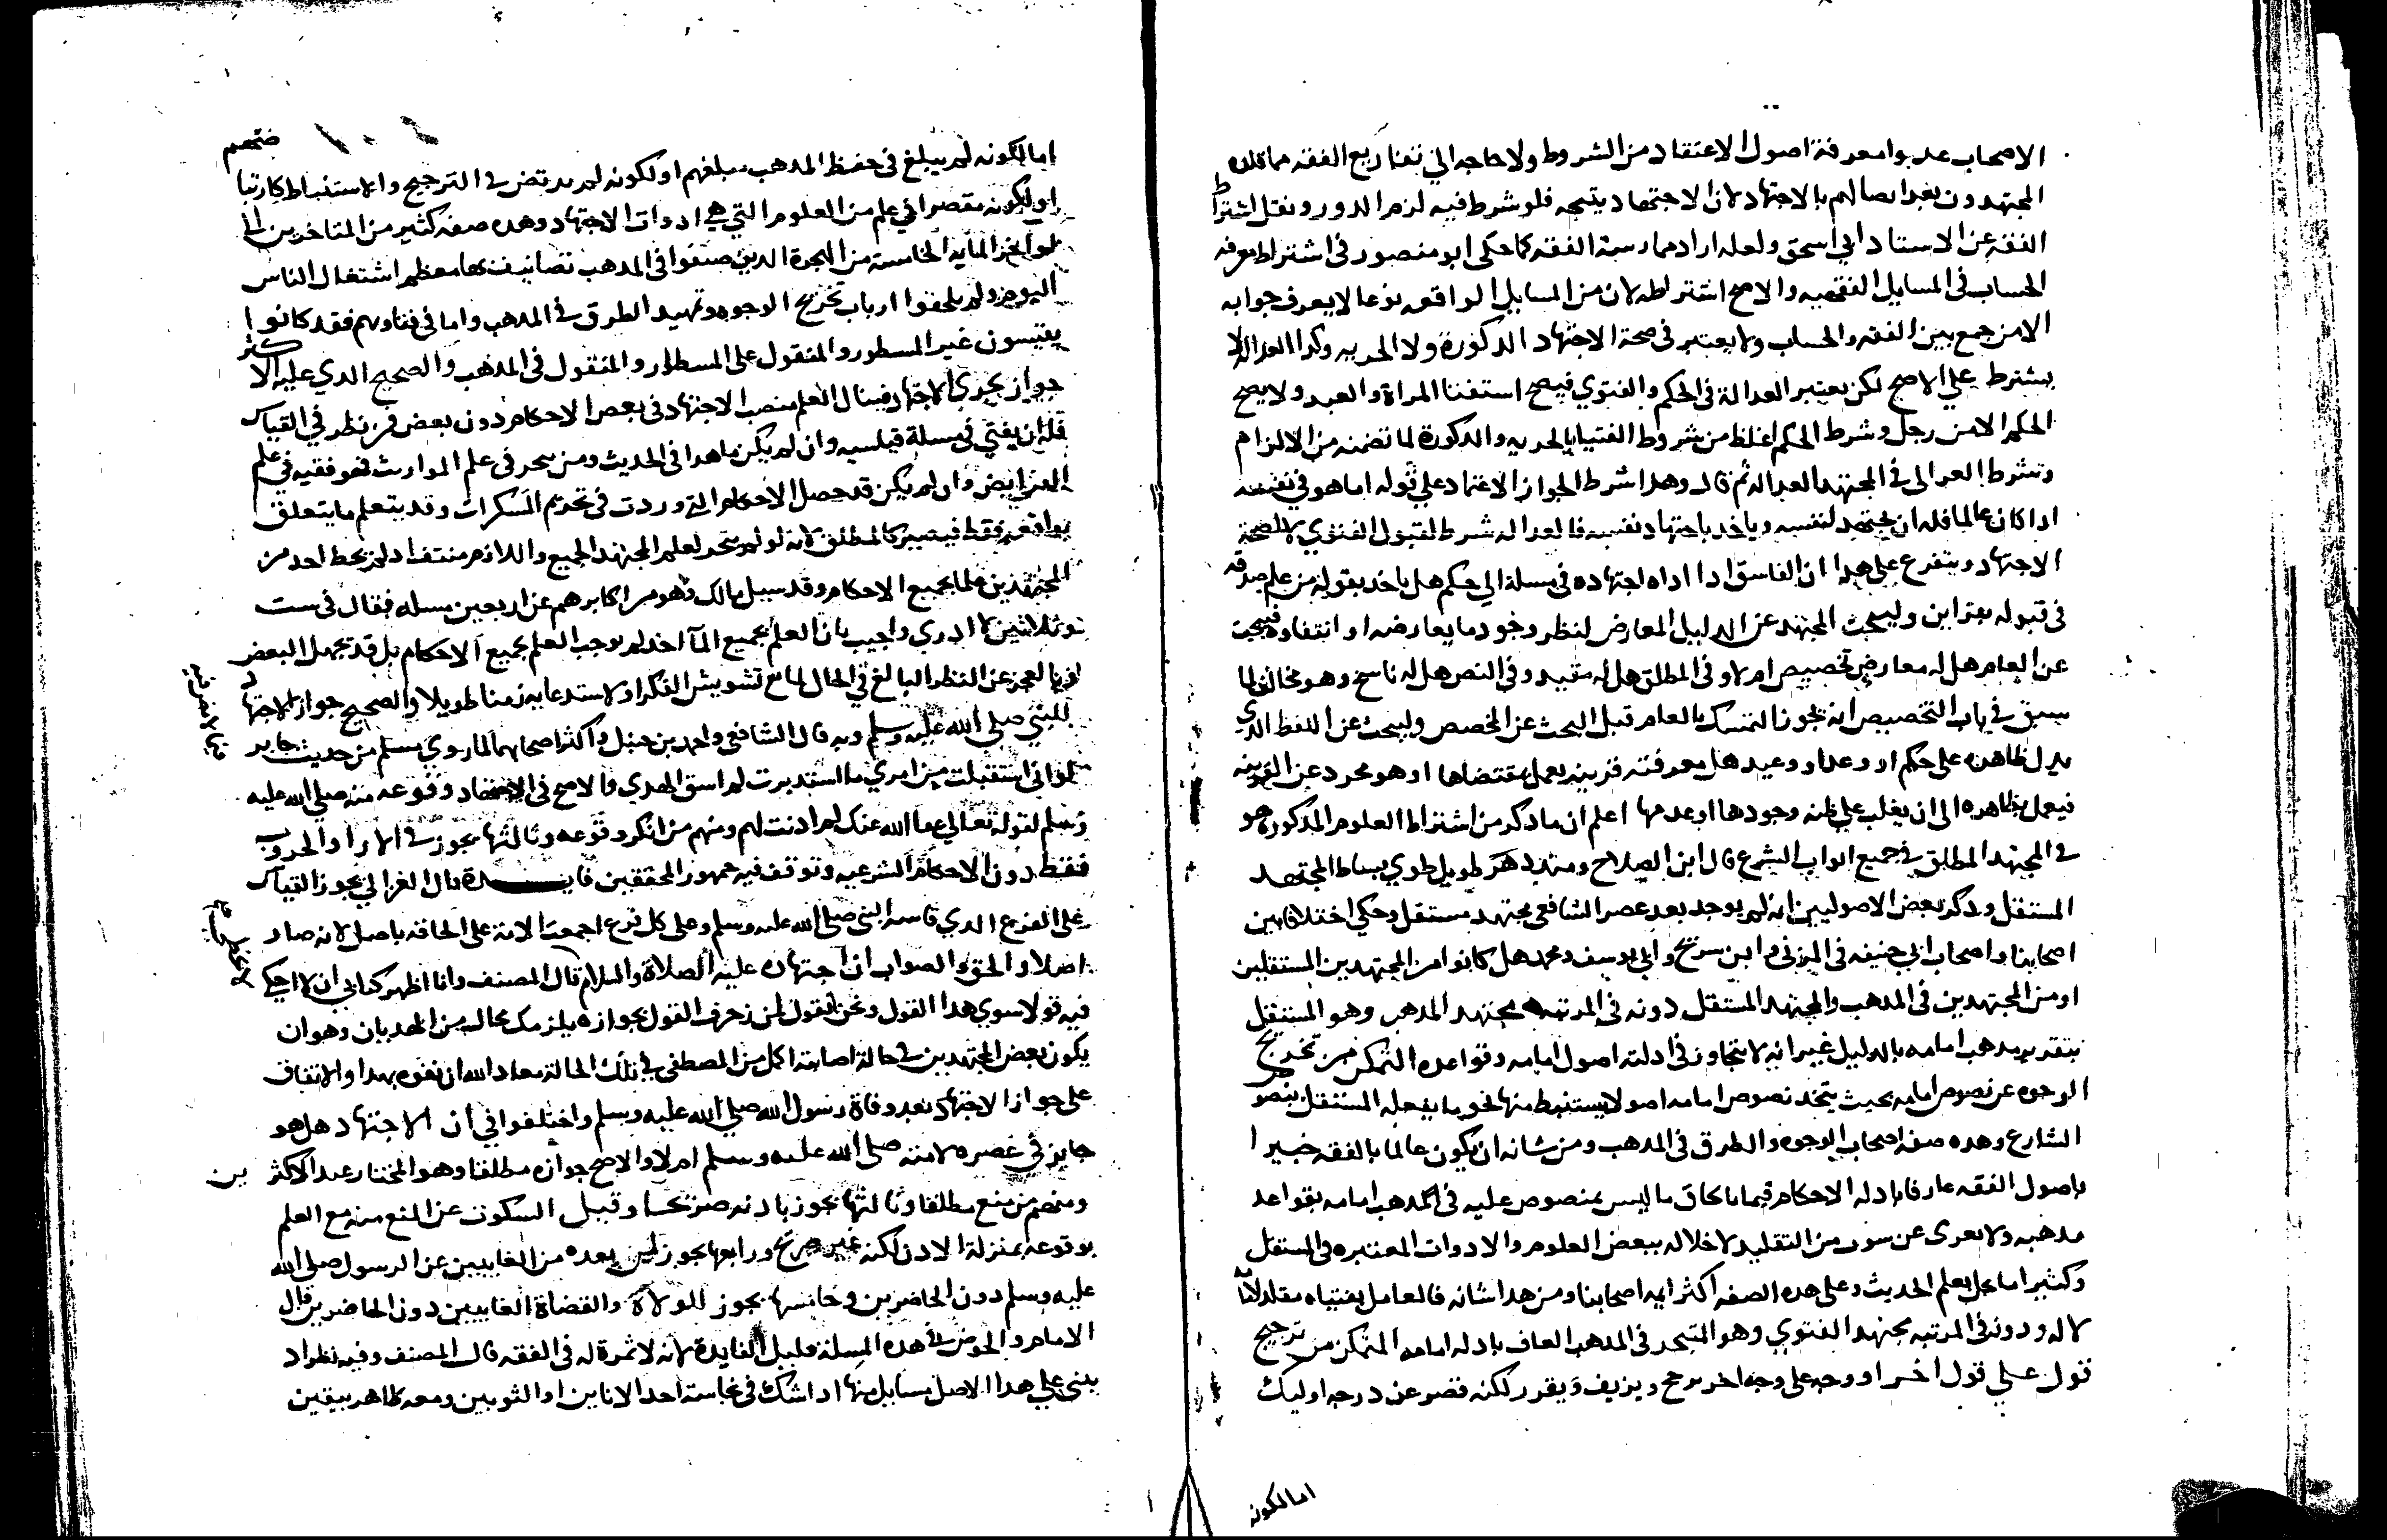 الاصحاب عدوا معرفة اصول الاعتقاد من الشروط ولا حاجه الي تفاريع الفقه مما قلده
المجتهدون بعد اتصالهم بالاجتهاد لان الاجتهاد ينتجه فلو شرط فيه لزم الدور ونقل اشتراط
الفقه عن الاستاد ابي اسحق ولعله اراد ممارسة الفقه كما حكي ابو منصور في اشتراط معرفه
الحساب في المسايل الفقهيه والاصح اشتراطه لان من المسايل الواقعه نوعا لا يعرف جوابه
الا من جمع بين الفقه والحساب ولا يعتبر في صحة الاجتهاد الدكورة ولا الحريه وكدا العداله لا
يشترط علي الاصح لكن يعتبر العدالة في الحكم والفتوي فيصح استفتا المراة والعبد ولا يصح
الحكم الا من رجل وشرط الحكم اغلظ من شروط الفتيا بالحريه والدكورة لما تضمنه من الالزام
وشرط الغزالي في المجتهد العداله ثم قال وهدا شرط لجواز الاعتماد علي قوله اما هو في نفسه
ادا كان عالما فله ان يجتهد لنفسه وياخد باجتهاد نفسه فالعداله شرط لقبول الفتوي لا لصحة
الاجتهاد ويتفرع علي هدا ان الفاسق ادا اداه اجتهاده في مسلة الي حكم هل ياخد بقوله من علم صدقه
في قوله بقراين وليبحث المجتهد عن الدليل المعارض لنظر وجود ما يعارضه او انتفاوه فيبحث
عن العام هل له معارض تخصيص ام لا وفي المطلق هل له مقيد وفي النص هل له ناسخ وهو مخالف لما
سبق في باب التخصيص انه يجوز التمسك بالعام قبل البحث عن المخصص وليبحث عن اللفظ الدي
يدل ظاهره علي حكم او وعد او وعيد هل معه قرينه يعمل بمقتضاها او هو مجرد عن القرينه
فيعمل بظاهره الي ان يغلب علي ظنه وجودها او عدمها اعلم ان ما دكر من اشتراط العلوم المدكوره هو
في المجتهد المطلق في جميع ابواب الشرع قال ابن الصلاح ومند دهر طويل طوي بساط المجتهد
المستقل ودكر بعض الاصوليين انه لم يوجد بعد عصر الشافعي مجتهد مستقل وحكي اختلافا بين
اصحابنا واصحاب ابي حنيفه في المزني وابن سريج وابي يوسف ومحمد هل كانوا من المجتهدين المستقلين
او من المجتهدين في المدهب والمجتهد المستقل دونه في المرتبه مجتهد المدهب وهو المستقل
بتقرير مدهب امامه بالدليل غير انه لا يتجاوز في ادلته اصول امامه وقواعده المتمكن من تخريج
الوجوه عن نصوص امامه بحيث يتخد نصوص امامه اصولا يستنبط منها نحو ما يفعله المستقل بنصوص
الشارع وهده صفه اصحاب الوجوه والطرق في المدهب ومن شانه ان يكون عالما بالفقه خبيرا
باصول الفقه عارفا بادله الاحكام قيما بالحاق ما ليس بمنصوص عليه في المدهب امامه بقواعد
مدهبه ولا يعرى عن سوب من التقليد لاخلاله ببعض العلوم والادوات المعتبره في المستقل
وكثيرا ما يخل بعلم الحديث وعلى هده الصفه اكثر ايمه اصحابنا ومن هدا شانه فالعامل بفتياه مقلد لامامه
لا له ودونه في المرتبه مجتهد الفتوي وهو المتبحر في المدهب العارف بادله امامه المتمكن من ترجيح
قول علي قول اخر او وجه علي وجه اخر يرجح ويزيف ويقرر لكنه قصر عن درجه اوليك
اما لكونه
اما لكونه لم يبلغ في حفظ المدهب مبلغهم او لكونه لم يرتض في الترجيح والاستنباط كارتياضهم
او لكونه مقصرا في علم من العلوم التي هي ادوات الاجتهاد وهده صفه كثير من المتاخرين الي
اواخر المايه الخامسة من الهجرة الدين صنفوا في المدهب تصانيف بها معظم اشتغال الناس
اليوم ولم يلحقوا ارباب تخريج الوجوه وتمهيد الطرق في المدهب واما في فتاويهم فقد كانوا
يقيسون غير المسطور والمنقول علي المسطور والمنقول في المدهب والصحيح الدي عليه الاكثر
جواز تجزي الاجتهاد فينال العلم منصب الاجتهاد في بعض الاحكام دون بعض فمن نظر في القياس
فله ان يفتي في مسلة قياسيه وان لم يكن ماهرا في الحديث ومن تبحر في علم المواريث فهو فقيه في علم
الفرايض وان لم يكن قد حصل الاحكام التي وردت في تحريم المسكرات وقد يتعلم ما يتعلق
بواقعه فقط فيصير كالمطلق لانه لو لم يتجز لعلم المجتهد الجميع واللازم منتف اد لم يحط احد من
المجتهدين علما بجميع الاحكام وقد سيل مالك وهو من اكابرهم عن اربعين مسله فقال في ست
وثلاثين لا ادري واجيب بان العلم بجميع الماخد لا يوجب العلم بجميع الاحكام بل قد يجهل البعض
للعجز عن النظر البالغ في الحال لمانع تشويش الفكر او لاستدعايه زمنا طويلا والصحيح جواز الاجتهاد
للنبي صلي الله عليه وسلم وبه قال الشافعي واحمد بن حنبل واكثر اصحابهما لما روي مسلم من حديث جابر
لو اني استقبلت من امري ما استدبرت لم اسق الهدي والاصح في الاجتهاد وقوعه منه صلي الله عليه
وسلم لقوله تعالي عفا الله عنك لم ادنت لهم ومنهم من انكر وقوعه وثالثها يجوز في الارا والحروب
فقط دون الاحكام الشرعيه وتوقف فيه جمهور المحققين فايدة قال الغزالي يجوز القياس
علي الفرع الدي قاسه النبي صلي الله عليه وسلم وعلي كل فرع اجمعت الامة علي الحاقه باصل لانه صار
اصلا والحق والصواب ان اجتهاده عليه الصلاة والسلام قال المصنف وانا اطهر كتابي ان لا احكي
فيه قولا سوي هدا القول ونحن نقول لمن زخرف القول بجوازه يلزمك محال من الهديان وهو ان
يكون بعض المجتهدين في حالة اصابته اكمل من المصطفي في تلك الحالة معاد الله ان نفوه بهدا والاتفاق
علي جواز الاجتهاد بعد وفاة رسول الله صلي الله عليه وسلم واختلفوا في ان الاجتهاد هل هو
جايز في عصره لامته صلي الله عليه وسلم ام لا والاصح جوازه مطلقا وهو المختار عند الاكثرين
ومنهم من منع مطلقا وثالثها يجوز بادنه صريحا وقيل السكوت عن المنع منه مع العلم
بوقوعه بمنزلة الادن لكنه غير صريح ورابعها يجوز لمن بعده من الغايبين عن الرسول صلي الله
عليه وسلم دون الحاضرين وخامسها يجوز للولاة والقضاة الغايبين دون الحاضرين قال
الامام والخوض في هده المسلة قليل الفايدة لانه لا ثمرة له في الفقه قال المصنف وفيه نظر اد
بني علي هدا الاصل مسايل منها ادا شك في نجاسة احد الاناين او الثوبين ومعه طاهر بيقين